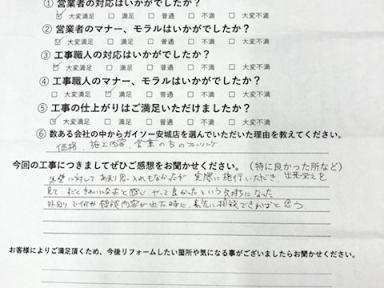 ① 営業者の対応はいかがでしたか?
☑ 大変満足 □ 満足 □ 普通 □ 不満 □ 大変不満
② 営業者のマナー、モラルはいかがでしたか?
☑ 大変満足 □ 満足 □ 普通 □ 不満 □ 大変不満
③ 工事職人の対応はいかがでしたか?
□ 大変満足 □ 満足 □ 普通 □ 不満 □ 大変不満
④ 工事職人のマナー、モラルはいかがでしたか?
□ 大変満足 ☑ 満足 □ 普通 □ 不満 □ 大変不満
⑤ 工事の仕上がりはご満足いただけましたか?
☑ 大変満足 □ 満足 □ 普通 □ 不満 □ 大変不満
⑥ 数ある会社の中からガイソー安城店を選んでいただいた理由を教えてください。
価格、施工内容、営業の方の
今回の工事につきましてぜひご感想をお聞かせください。(特に良かった所など)
外壁に対して 実際に施行いただき 出来栄えを
見て やって良かったという気持になった
外回りで何か 相談 出た時に 相談できればと思う
お客様によりご満足頂くため、今後リフォームしたい箇所や気になる事がございましたらお聞かせください。